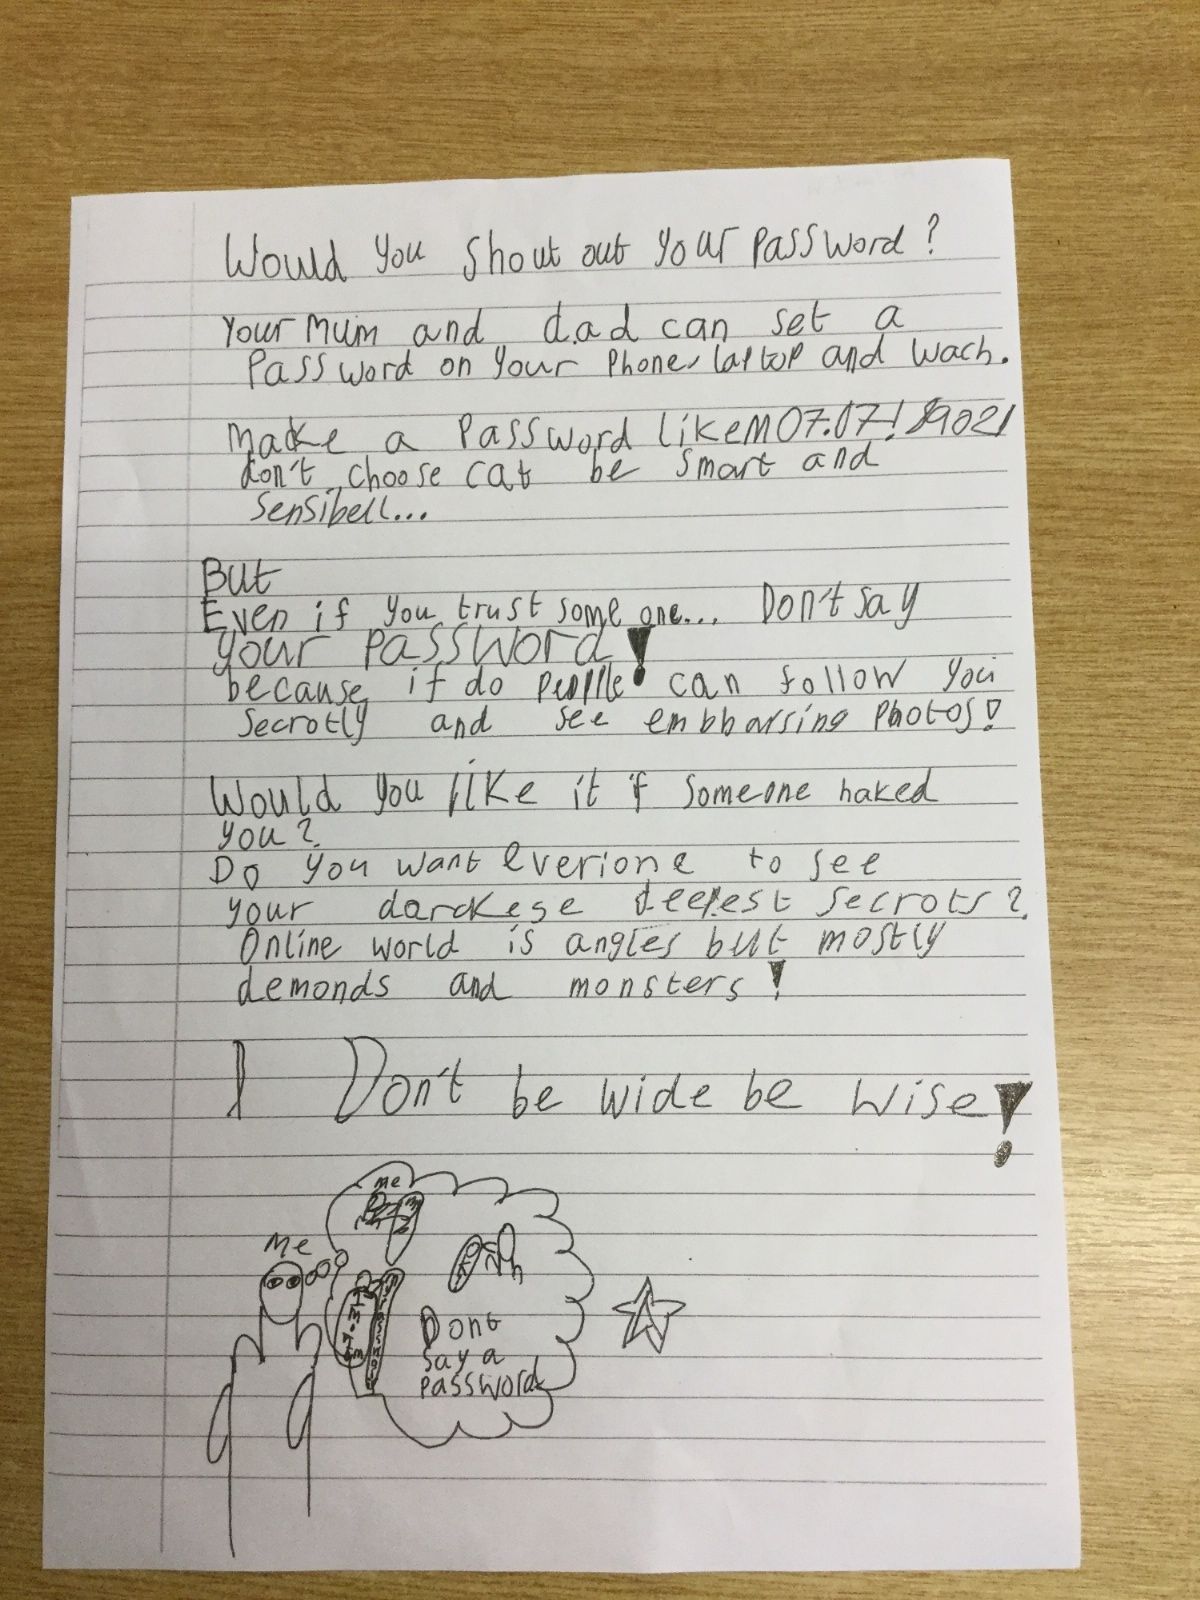 Would you shout out your password?
Your Mum and dad can set a
password on your phone, laptop and wach.
make a password like M07.07!
don't choose cat be smart and
sensibell...
But
Even if you trust some one... Don't say
your password!
because if do people can follow you
secrotly and see embbarsing photos!
Would you like it if someone haked
you?
Do you want everione to see
your darckese deepest secrots?
Online world is angles but mostly
demonds and monsters!
Don't be wide be wise!
me
Me
Dont
say a
password